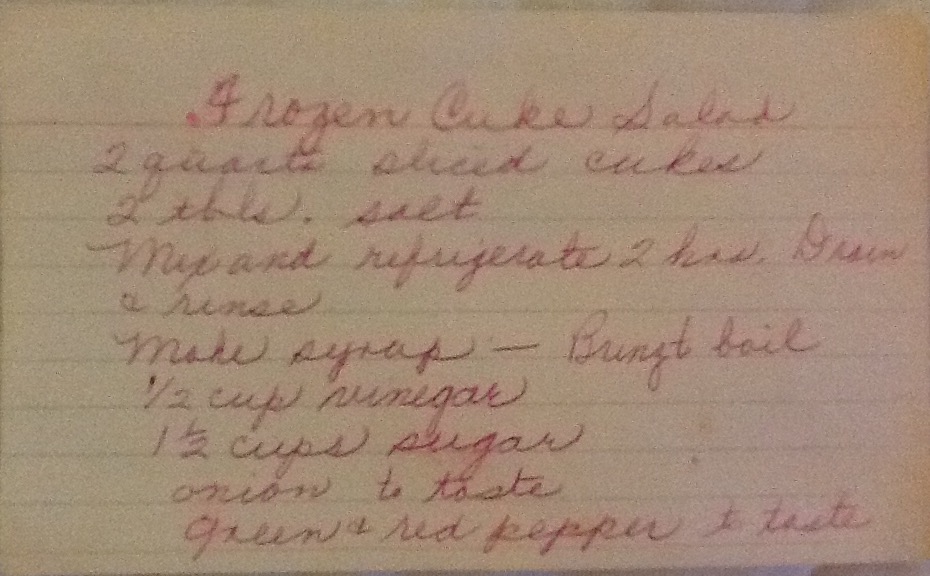 Frozen Cuke Salad
2 quarts sliced cukes
2 tbls. salt
Mix and refrigerate 2 hrs. Drain
& rinse
Make syrup — Bring to boil
1/2 cup vinegar
1 1/2 cups sugar
onion to taste
green & red pepper to taste